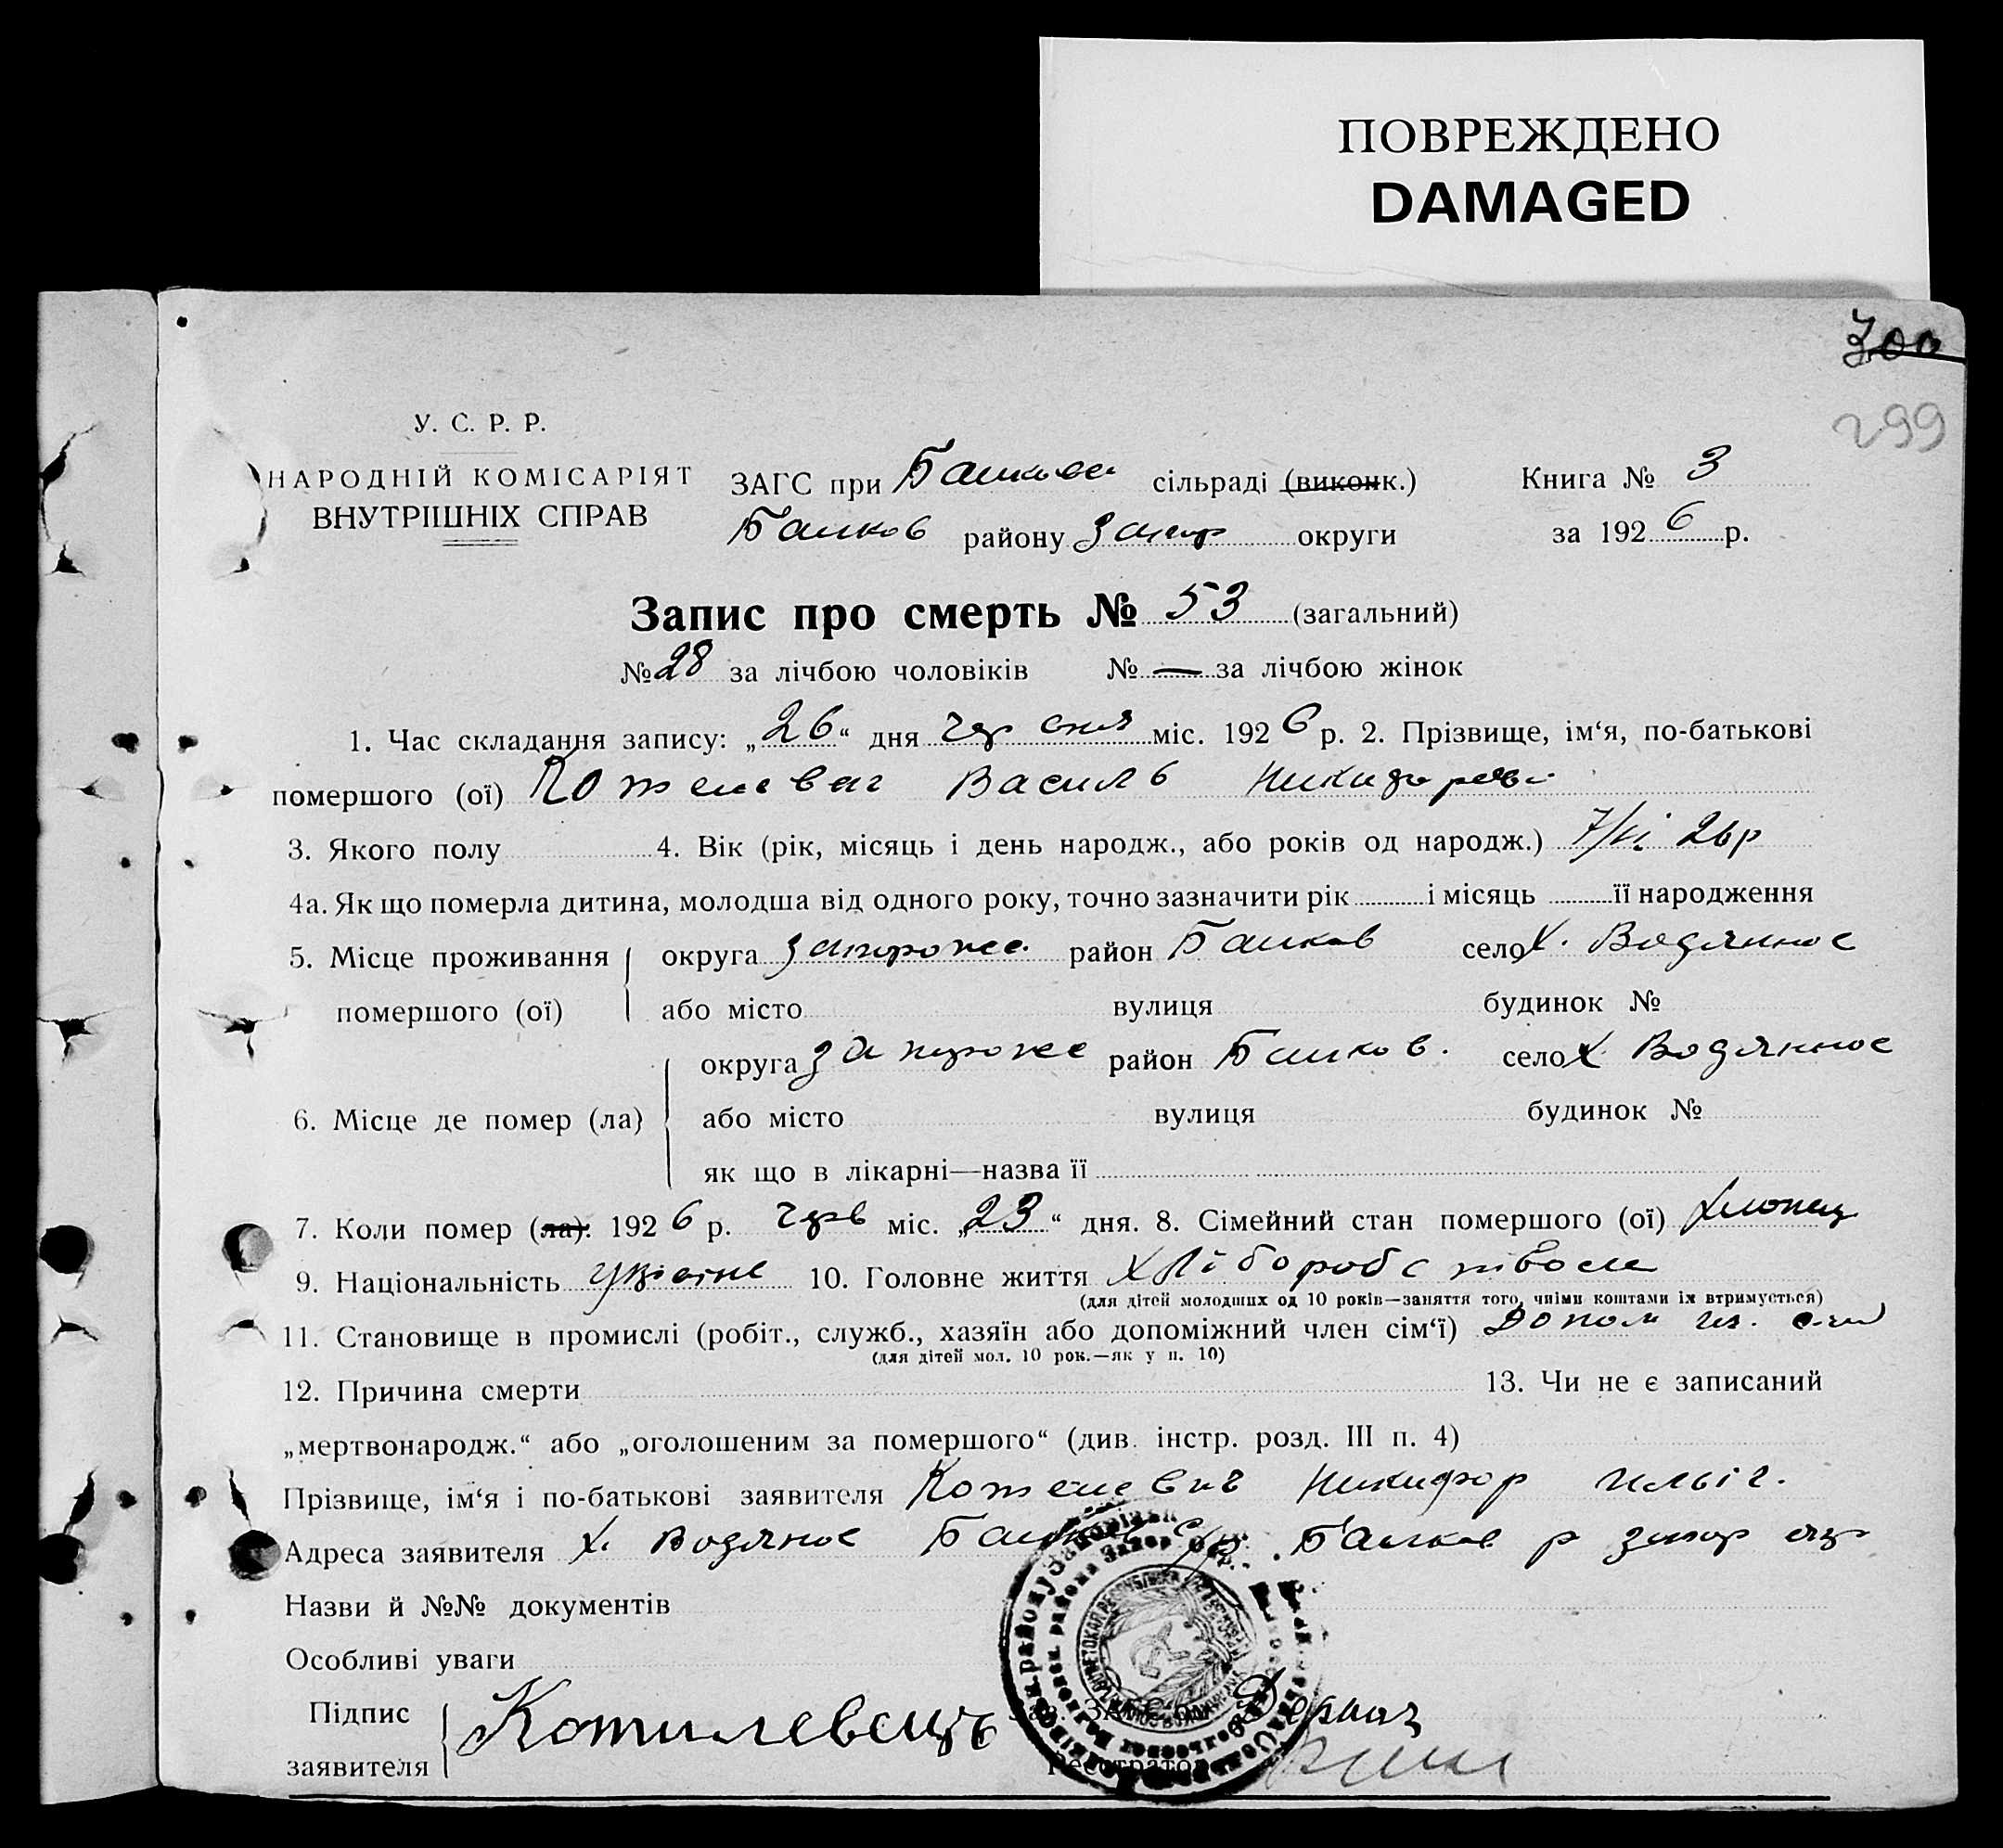 ПОВРЕЖДЕНО
DAMAGED
300
299
У. С. Р. Р.
НАРОДНІЙ КОМІСАРІЯТ
ВНУТРІШНІХ СПРАВ
ЗАГС при сільраді (виконк.) Книга № 3
Балков району Запор округи за 1926 р.
Запис про смерть № 53 (загальний)
№ 28 за лічбою чоловіків № — за лічбою жінок
1. Час складання запису: „26“ дня червня міс. 1926 р. 2. Прізвище, ім‘я, по-батькові
помершого (ої) Василь
3. Якого полу 4. Вік (рік, місяць і день народж., або років од народж.) 7/VI 26р
4а. Як що померла дитина, молодша від одного року, точно зазначити рік і місяць її народження
5. Місце проживання округа Запорожс. район Балков село Х. Водянное
помершого (ої) або місто вулиця будинок №
округа Запорожс район Балков. село Х. Водянное
6. Місце де помер (ла) або місто вулиця будинок №
як що в лікарні—назва її
7. Коли помер (ла): 1926 р. черв міс. „23“ дня. 8. Сімейний стан помершого (ої) хлопец
9. Національність 10. Головне життя хліборобство
(для дітей молодших од 10 років—заняття того, чиїми коштами їх втримується)
11. Становище в промислі (робіт., служб., хазяїн або допоміжний член сім‘ї) Допом чл. сем
(для дітей мол. 10 рок.—як у п. 10)
12. Причина смерти 13. Чи не є записаний
„мертвонародж.“ або „оголошеним за помершого“ (див. інстр. розд. III п. 4)
Прізвище, ім‘я і по-батькові заявителя Никифор Ильїч.
Адреса заявителя х. Водяное Балков с/р. Балков р Запор окр
Назви й №№ документів
Особливі уваги
Підпис
заявителя
Реєстратор